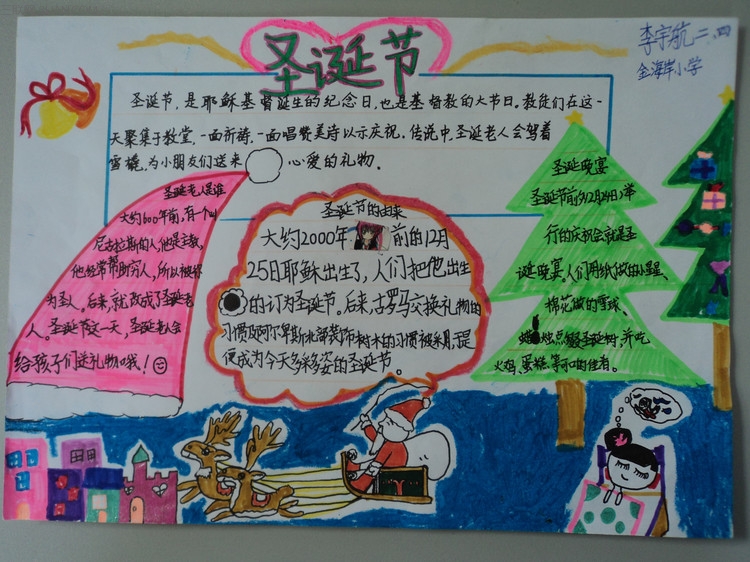 圣诞节
李宇航 二.四
金海岸小学
圣诞节,是耶稣基督诞生的纪念日,也是基督教的大节日。教徒们在这一
天聚集于教堂,一面祈祷,一面唱赞美诗以示庆祝。传说中,圣诞老人会驾着
雪橇,为小朋友们送来 心爱的礼物。
圣诞老人是谁
大约600年前,有一个叫
尼古拉斯的人,他是主教,
他经常帮助穷人,所以被称
为圣人。后来,就改成了圣诞老
人。圣诞节这一天,圣诞老人会
给孩子们送礼物哦!
圣诞节的由来
大约2000年 前的12月
25日耶稣出生了,人们把他出生
的订为圣诞节。后来,古罗马交换礼物的
习惯及阿尔卑斯北部装饰树木的习惯被利用,
便成为今天多彩多姿的圣诞节。
圣诞晚宴
圣诞节前夕(12月24日)举
行的庆祝会就是圣
诞晚宴。人们用纸做的小星星、
棉花做的雪球、
蜡烛点缀圣诞树,并吃
火鸡、蛋糕等可口的佳肴。